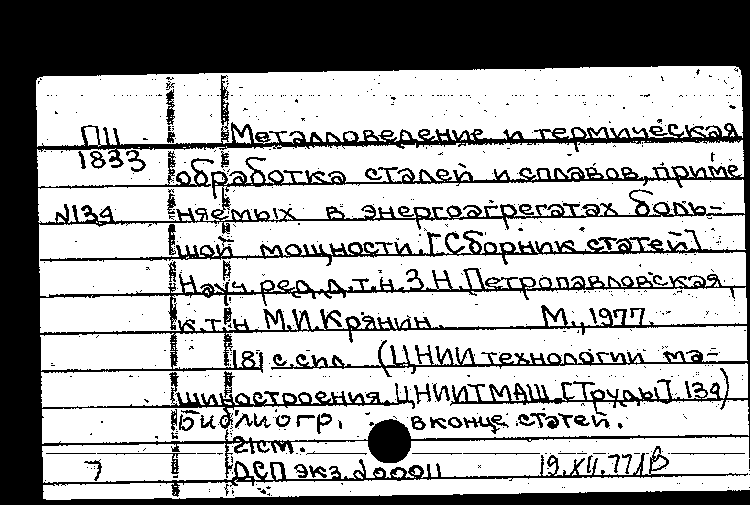 П11 Металловедение и термическая
1833
обработка сталей и сплавов, приме
№134 няемых в энергоагрегатах боль-
шой мощности. [Сборник статей]
Науч. ред. д.т.н. З.Н. Петропавловская,
к.т.н. М.И. Крянин. М., 1977.
181 с. с ил. (ЦНИИ технологии ма-
шиностроения. ЦНИИТМАШ. [Труды]. 134)
Библиогр. в конце статей.
21см.
7 ДСП экз. №00011 19.XII.77